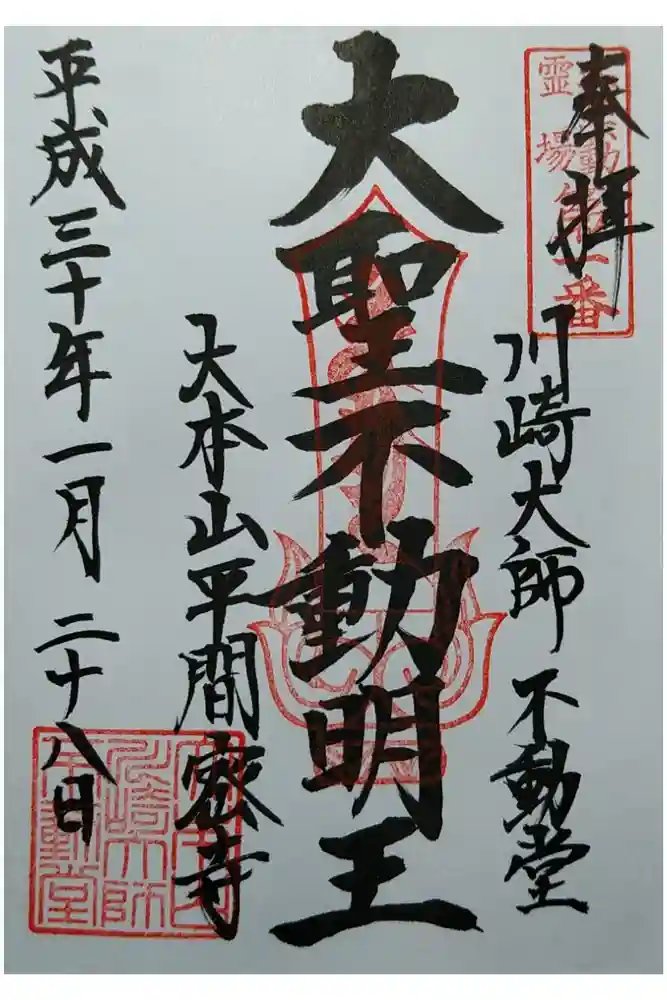 奉拝
川崎大師 不動堂
大聖不動明王
大本山平間密寺
平成三十年一月二十八日
霊場
一番
川崎大師
不動堂